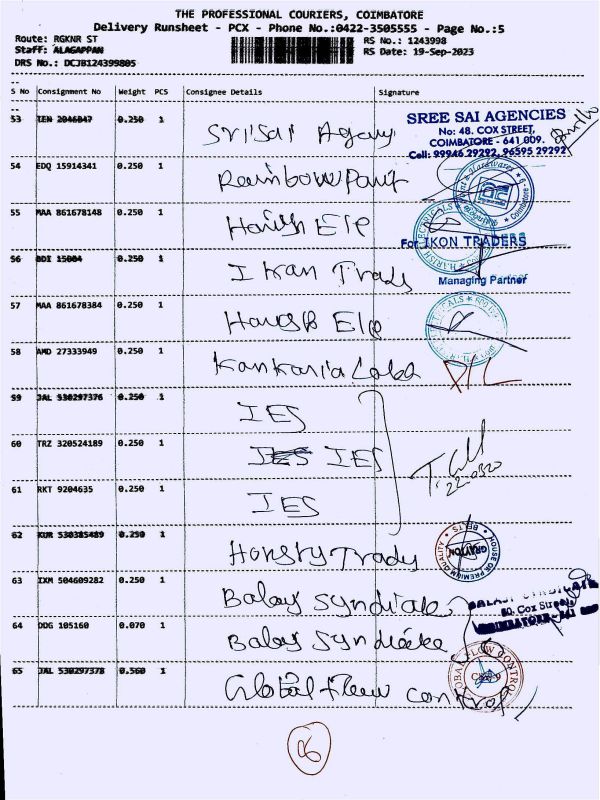 THE PROFESSIONAL COURIERS, COIMBATORE
Delivery Runsheet - PCX - Phone No.:0422-3505555 - Page No.:5
Route: RGKNR ST
RS No.: 1243998
Staff: ALAGAPPAN
RS Date: 19-Sep-2023
DRS No.: DCJB124399805
S No Consignment No Weight PCS Consignee Details Signature
53 IEN 2046847 0.250 1 Srisai Agency
SREE SAI AGENCIES
No: 48. COX STREET,
COIMBATORE - 641 009.
Cell: 99946 29292, 96595 29292
54 EDQ 15914341 0.250 1 Rainbow Paint
55 MAA 861678148 0.250 1 Harish Ele
For IKON TRADERS
56 BDI 15084 0.250 1 Ikan Trads
Managing Partner
57 MAA 861678384 0.250 1 Harish Ele
58 AMD 27333949 0.250 1 Kankaria Labels
59 JAL 530297376 0.250 1 IES
60 TRZ 320524189 0.250 1 IES IES
61 RKT 9204635 0.250 1 IES
62 KUR 530385489 0.250 1 Honsty Trads
HOUSE OF PREMIUM QUALITY BELTS
GRAYTON
63 IXM 504609282 0.250 1 Balaj Syndicate
BALAJI SYNDICATE
60, Cox Street,
COIMBATORE-641 001
64 DDG 105160 0.070 1 Balaj Syndicate
65 JAL 530297378 0.560 1 Global flow control
GLOBAL FLOW CONTROL
06